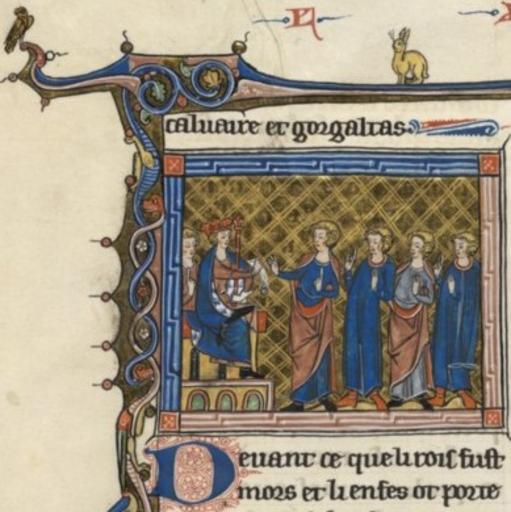 caluaire et gorgaltas
Deuant ce que li rois fust
mors et li enfes ot porte